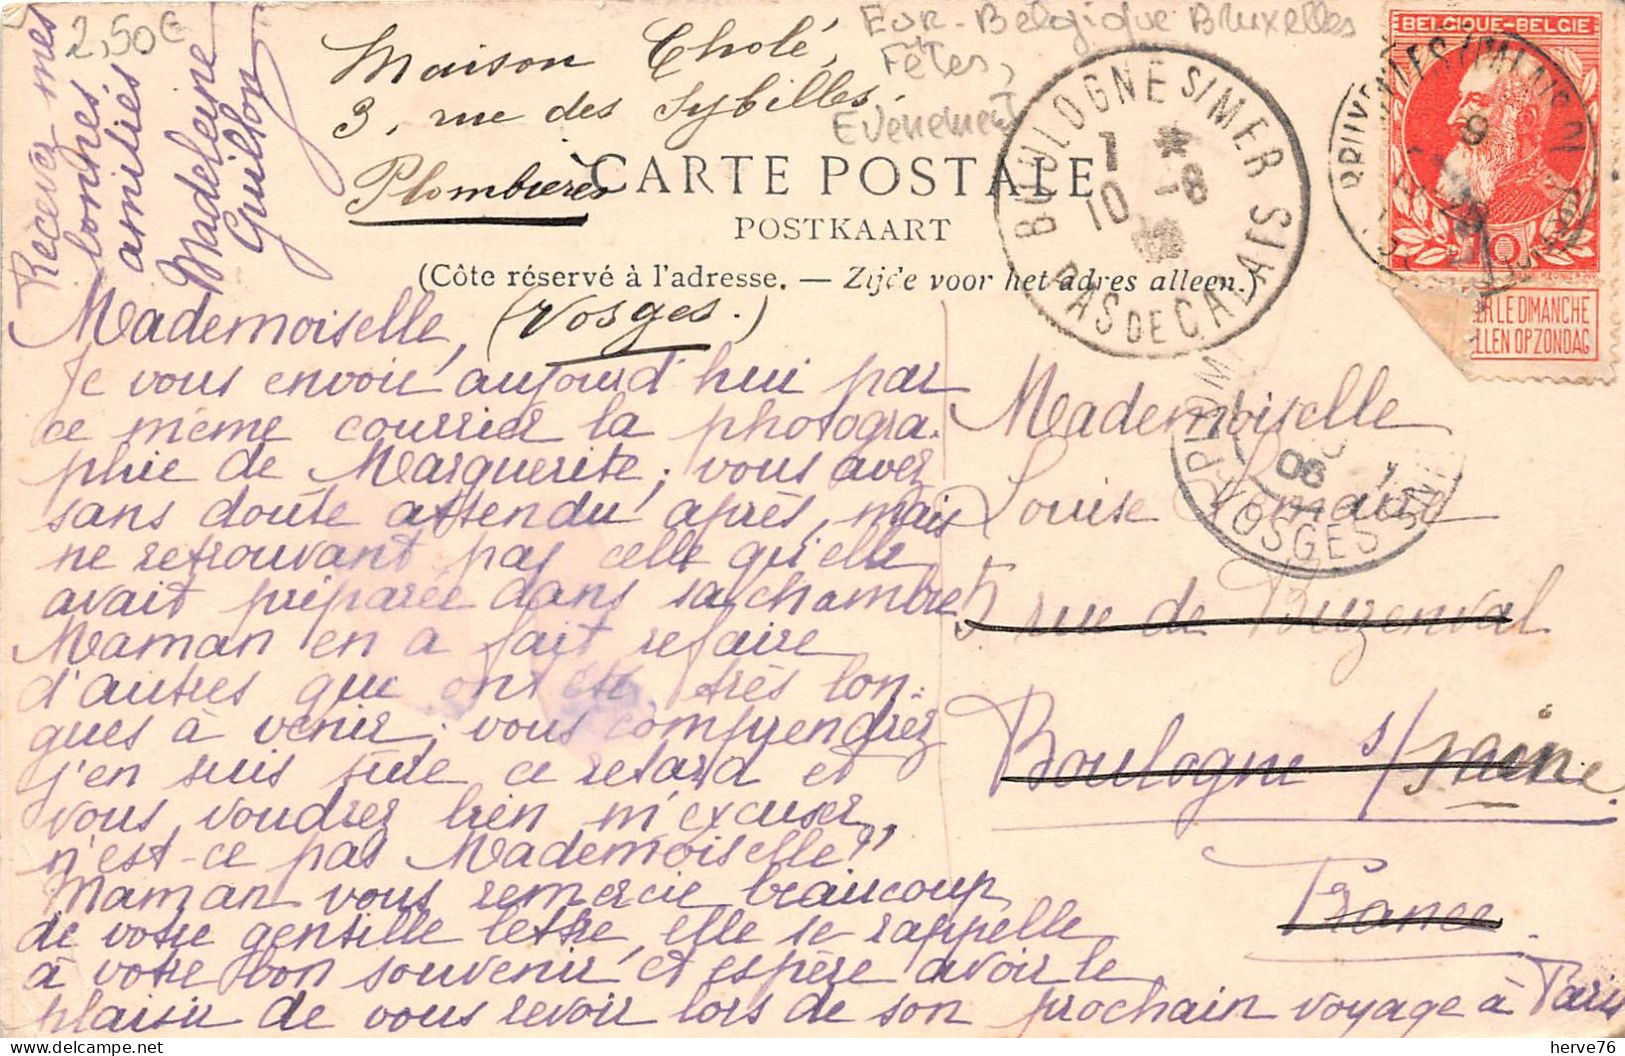 2,50€
Eur-Belgique Bruxelles
Fêtes,
Evenement
Maison Cholé,
3, rue des Sybilles.
Plombières
(Vosges.)
CARTE POSTALE
POSTKAART
(Côte réservé à l'adresse. — Zijde voor het adres alleen.)
BELGIQUE-BELGIE
10
LE DIMANCHE
LLEN OP ZONDAG
BOULOGNE S/MER
7 *
10 -8
PAS DE CALAIS
VOSGES
06
Mademoiselle,
Je vous envoie aujourd'hui par
ce même courrier la photogra-
phie de Marguerite; vous avez
sans doute attendu après, mais
ne retrouvant pas celle qu'elle
avait préparée dans sa chambre
Maman en a fait refaire
d'autres que ont été très lon-
gues à venir; vous comprendrez
j'en suis sûre ce retard et
vous voudrez bien m'excuser,
n'est-ce pas Mademoiselle?
Maman vous remercie beaucoup
de votre gentille lettre, elle se rappelle
à votre bon souvenir et espère avoir le
plaisir de vous revoir lors de son prochain voyage à Paris
Recevez mes
bonnes
amitiés
Madeleine
Guillon
Mademoiselle
Louise
5 rue de Buzenval
Boulogne s/Seine
France
herve76